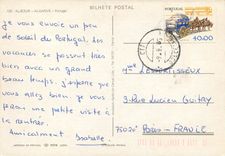 BILHETE POSTAL
ALJEZUR - ALGARVE - Portugal
PORTUGAL
40.00
je vous envoie un peu
de soleil du Portugal. Les
vacances se passent très
bien avec un grand
beau temps. J'espère que
vous allez bien je vous
ferai une petite visite à
la rentrée.
Amicalement
Isabelle
3 Rue Lucien Guitry
75020 Paris - FRANCE